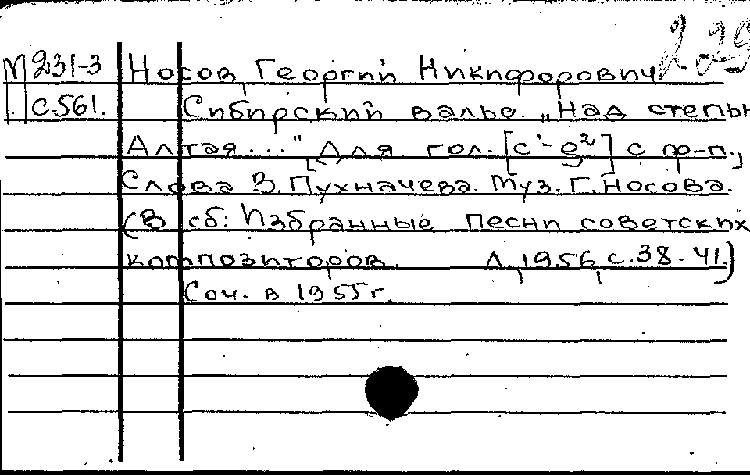 229
М 231-3 Носов, Георгий Никифорович
С.561. Сибирский вальс. „Над степью
Алтая..." [Для гол. [c¹-e²] с ф-п.,
Слова В. Пухначева. Муз. Г. Носова.
(В сб: Избранные песни советских
композиторов. Л, 1956, с.38-41.)
Соч. в 1955г.